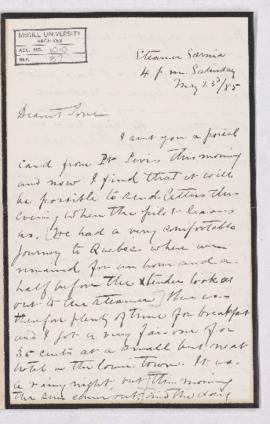 McGILL UNIVERSITY
ARCHIVES
ACC. NO. 1010
REF. 87
Steamer Sarnia
4 p m Saturday
May 23d/85
Dearest Love
I sent you a postal
card from Pt Levis this morning
and now I find that it will
be possible to send letters this
evening when the pilot leaves
us. (We had a very comfortable
journey to Quebec where we
remained for an hour and a
half before the tender took us
out to the steamer) There was
therefore plenty of time for breakfast
and I got a very fair one for
35 cents at a small but neat
hotel in the lower town. It was
a rainy night but this morning
the sun came out and the day